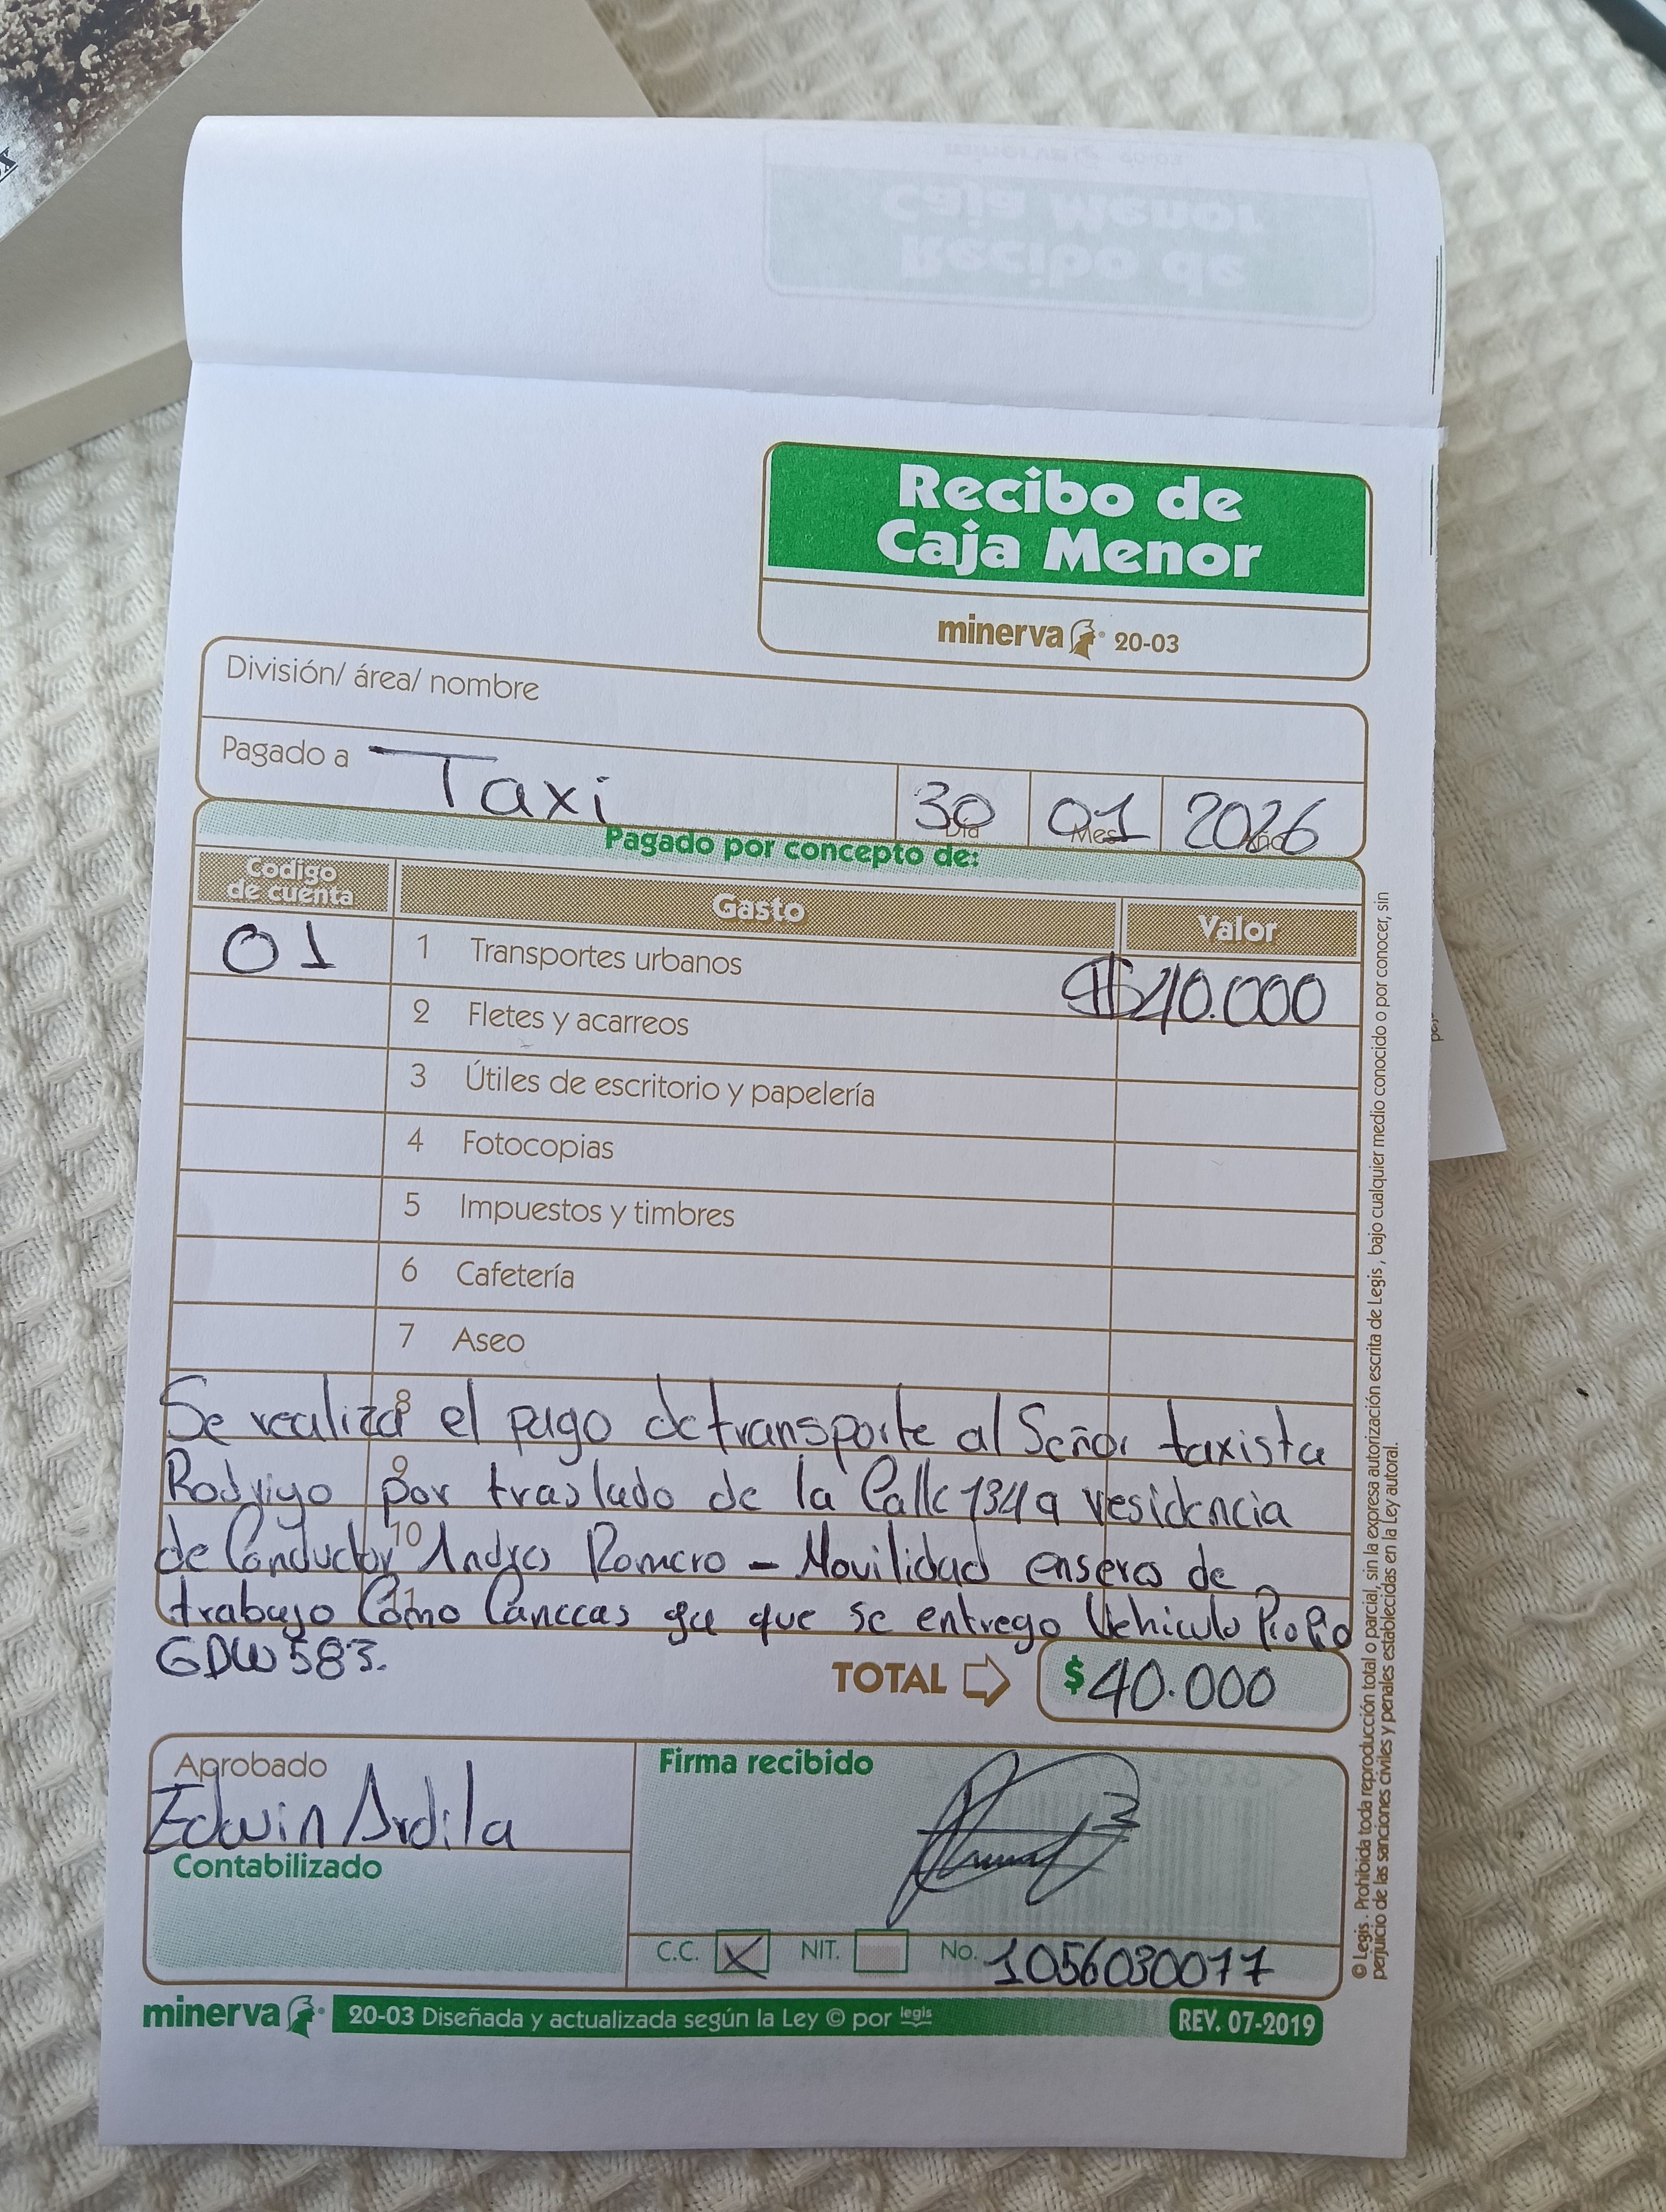 Recibo de
Caja Menor
minerva 20-03
División/ área/ nombre
Pagado a Taxi
30 01 2026
Día Mes Año
Pagado por concepto de:
Codigo de cuenta Gasto Valor
01 1 Transportes urbanos $40.000
2 Fletes y acarreos
3 Útiles de escritorio y papelería
4 Fotocopias
5 Impuestos y timbres
6 Cafetería
7 Aseo
8
Se realiza el pago de transporte al Señor taxista
9
Rodrigo por traslado de la Calle 134 a residencia
10
de Conductor Andres Romero - Movilidad enseres de
11
trabajo Como Caneccas ya que se entrego Vehiculo Propio
GDW583.
TOTAL $40.000
Aprobado
Edwin Ardila
Contabilizado
Firma recibido
C.C. X NIT. No. 1056030077
minerva 20-03 Diseñada y actualizada según la Ley © por legis REV. 07-2019
© Legis . Prohibida toda reproducción total o parcial, sin la expresa autorización escrita de Legis , bajo cualquier medio conocido o por conocer, sin
perjuicio de las sanciones civiles y penales establecidas en la Ley autoral.